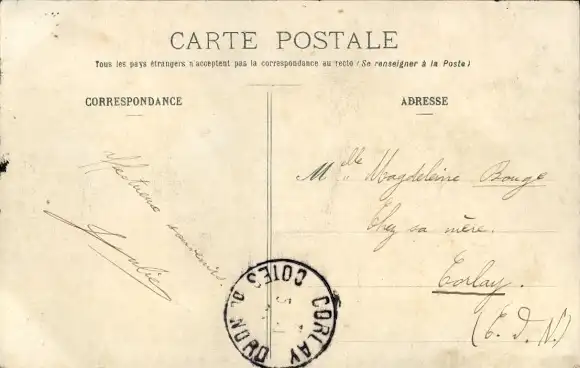 CARTE POSTALE
Tous les pays étrangers n'acceptent pas la correspondance au recto (Se renseigner à la Poste)
CORRESPONDANCE
ADRESSE
Affectueux souvenirs.
Mlle Magdeleine Bouge
Chez sa mère.
Corlay.
(C. D. N.)
CORLAY
COTES DU NORD